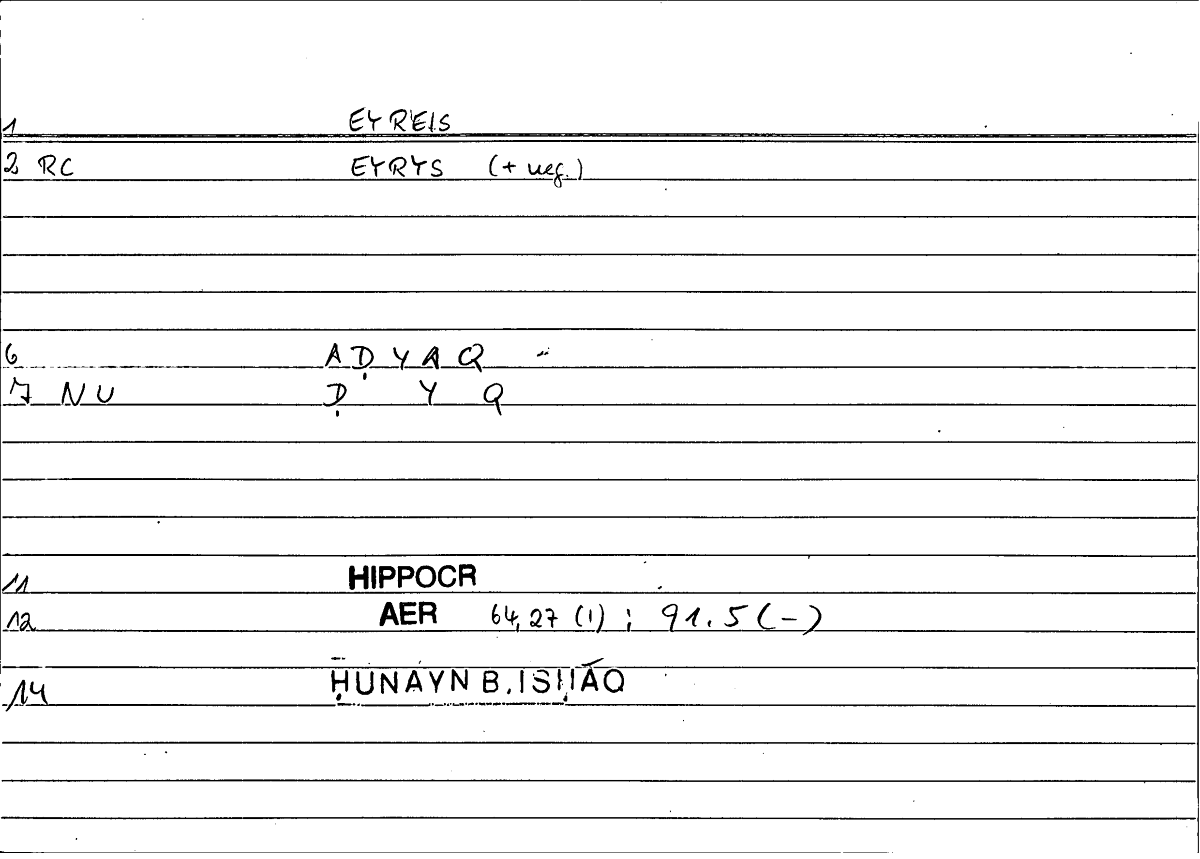 1 EYREIS
2 RC EYRYS (+ neg.)
6 AḌYAQ "
7 NU Ḍ Y Q
11 HIPPOCR
12 AER 64,27 (1) ; 91.5 (-)
14 ḤUNAYN B. ISḤĀQ